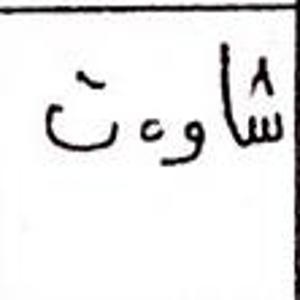 شاوءت